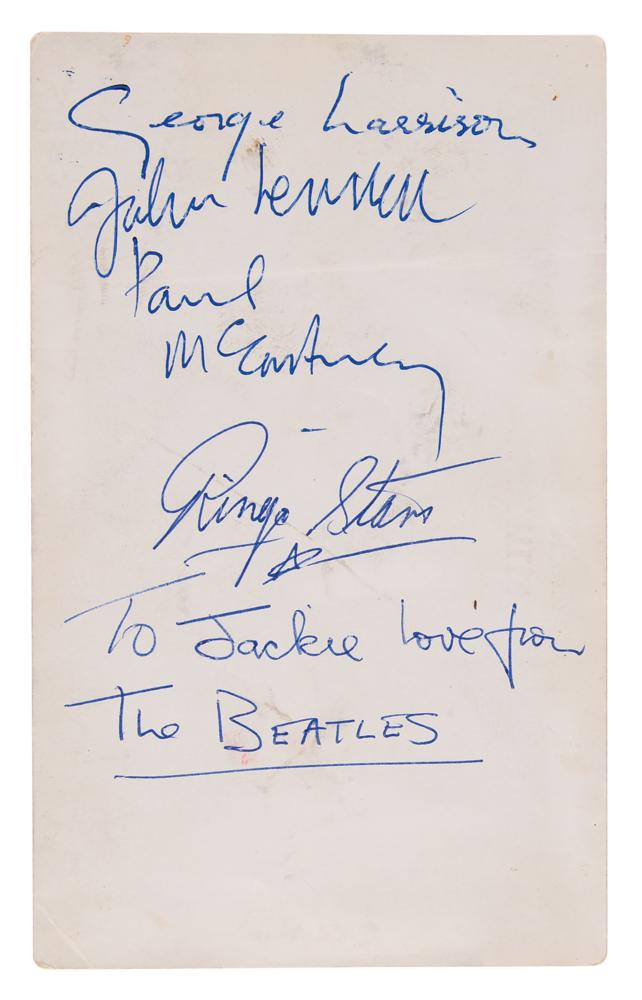 George Harrison
John Lennon
Paul
McCartney
Ringo Starr
To Jackie love from
The BEATLES